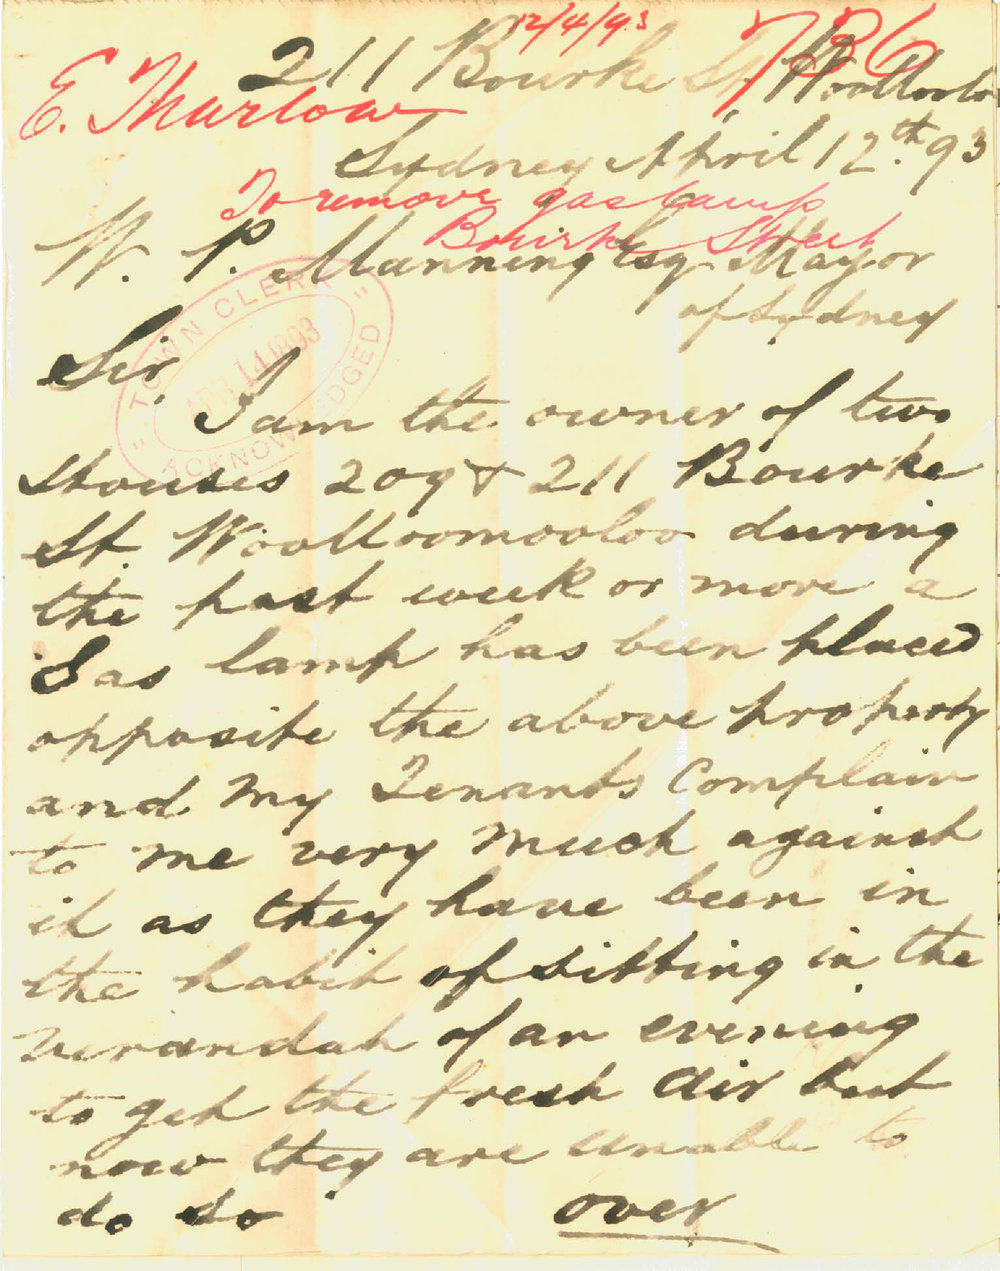 12/4/93
736
211 Bourke St. Woolloo
E. Thurlow
Sydney April 12.th 93
To remove gas lamp
Bourke Street
W. P. Manning Esq Mayor
of Sydney
"TOWN CLERK"
APR 14 1893
ACKNOWLEDGED
Sir.
I am the owner of two
Houses 209 & 211 Bourke
St. Woolloomooloo during
the past week or more a
Gas lamp has been placed
opposite the above property
and My Tenants Complain
to me very much against
it as they have been in
the habit of sitting in the
Verandah of an evening
to get the fresh air but
now they are unable to
do so
over